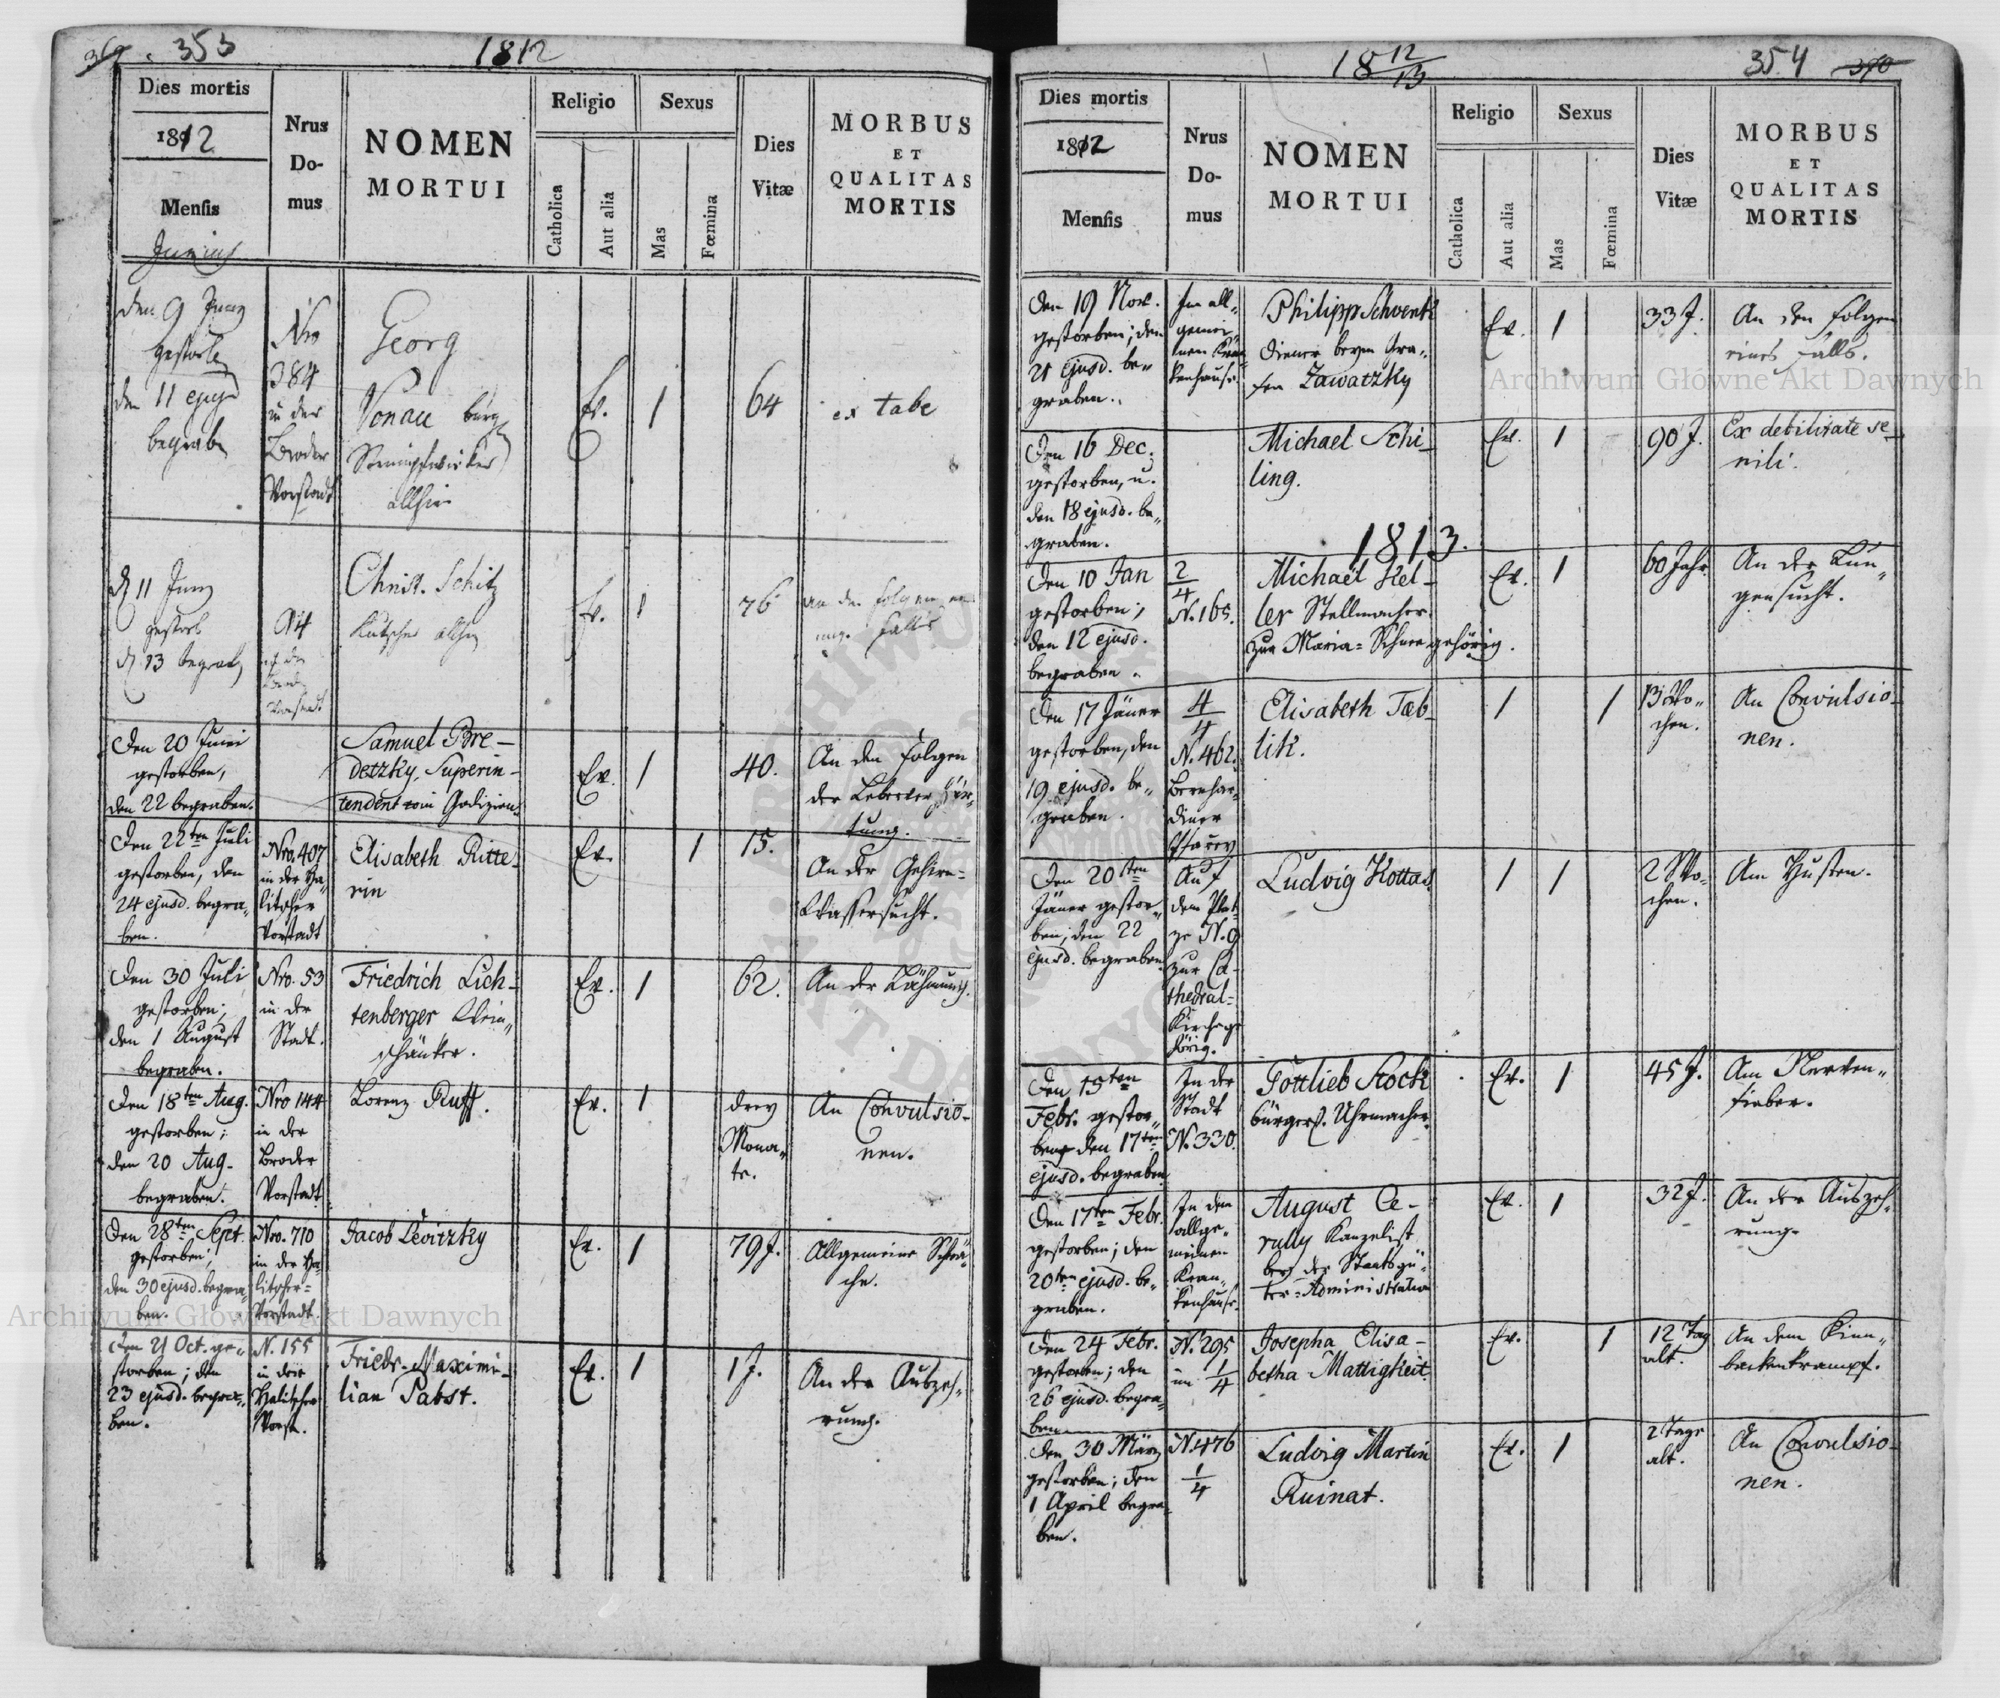 369. 353
1812
Dies mortis
1812
Mensis
Junius
Nrus
Do-
mus
NOMEN
MORTUI
Religio
Catholica
Aut alia
Sexus
Mas
Fœmina
Dies
Vitæ
MORBUS
ET
QUALITAS
MORTIS
den 9 Juny
gestorb
den 11 ejusd
begrab
Nro
384
in der
Broder
Vorstadt
Georg
Vonau bürg
Strumpfwirker
allhier
Ev.
1
64
ex tabe
d 11 Juny
gestorb
d 13 begrab
Christ. Schitz
Kutscher allhier
Ev.
1
76
an den Folgen
Falls
Den 20 Juni
gestorben,
den 22 begraben.
Samuel Bre-
detzky, Superin-
tendent von Galizien.
Ev.
1
40.
An den Folgen
der Leberverhär-
tung.
Den 22ten Juli
gestorben, den
24 ejusd. begra-
ben.
Nro. 407
in der Ha-
litscher
Vorstadt
Elisabeth Ritte-
rin
Ev.
1
15.
An der Gehirn-
Wassersucht.
Den 30 Juli
gestorben;
den 1 August
begraben.
Nro. 53
in der
Stadt.
Friedrich Lich-
tenberger Wein-
schänker.
Ev.
1
62.
An der Lähmung.
Den 18ten Aug.
gestorben;
den 20 Aug.
begraben.
Nro 144
in der
Broder
Vorstadt
Lorenz Ruff.
Ev.
1
drey
Mona-
te.
An Convulsio-
nen.
Den 28ten Sept.
gestorben;
den 30 ejusd. begra-
ben.
Nro. 710
in der Ha-
litscher-
Vorstadt
Jacob Levitzky
Ev.
1
79 J.
Allgemeine Schwä-
che.
Den 21 Oct. ge-
storben; den
23 ejusd. begra-
ben.
N. 155
in der
Halitscher
Vorst.
Friedr. Maximi-
lian Pabst.
Ev.
1
1 J.
An der Auszeh-
rung.
18 12/13
354 370
Dies mortis
1812
Mensis
Nrus
Do-
mus
NOMEN
MORTUI
Religio
Catholica
Aut alia
Sexus
Mas
Fœmina
Dies
Vitæ
MORBUS
ET
QUALITAS
MORTIS
Den 19 Nov.
gestorben; den
21 ejusd. be-
graben.
Im all-
gemei-
nen Kran-
kenhause.
Philipp Schwenk
Diener beym Gra-
fen Zawatzky
Ev.
1
33 J.
An den Folgen
eines Falls.
Den 16 Dec.
gestorben, u.
den 18 ejusd. be-
graben.
Michael Schi-
ling.
Ev.
1
90 J.
Ex debilitate se-
nili.
1813.
Den 10 Jan
gestorben;
den 12 ejusd.
begraben.
2/4
N. 165.
Michael Kel-
ler Stellmacher.
zur Maria-Schnee gehörig.
Ev.
1
60 Jahr.
An der Lun-
gensucht.
Den 17 Jäner
gestorben, den
19 ejusd. be-
graben.
4/4
N. 462.
Bernhar-
diner
Pfarey
Elisabeth Tab-
lik.
1
1
13 Wo-
chen.
An Convulsio-
nen.
Den 20sten
Jäner gestor-
ben; den 22
ejusd. begraben
Auf
dem Plat-
ze N. 9
zur Ca-
thedral-
Kirche ge-
hörig.
Ludvig Kottas
1
1
2 Wo-
chen.
Am Husten.
Den 15ten
Febr. gestor-
ben den 17ten
ejusd. begraben
In der
Stadt
N. 330.
Gottlieb Stock
bürgerl. Uhrmacher.
Ev.
1
45 J.
Am Nerven-
fieber.
Den 17ten Febr.
gestorben; den
20ten ejusd. be-
graben.
In dem
allge-
meinen
Kran-
kenhause.
August Ce-
rully Kanzelist
bey der Staatsgü-
ter-Administration
Ev.
1
32 J.
An der Auszeh-
rung.
Den 24 Febr.
gestorben; den
26 ejusd. begra-
ben.
N. 295
im 1/4
Josepha Elisa-
betha Mattigkeit
Ev.
1
12 Tag
alt.
An dem Kinn-
backenkrampf.
Den 30 März
gestorben; den
1 April begra-
ben.
N. 476
1/4
Ludvig Martin
Ruinat.
Ev.
1
2 Tage
alt.
An Convulsio-
nen.
Archiwum Główne Akt Dawnych
Archiwum Główne Akt Dawnych